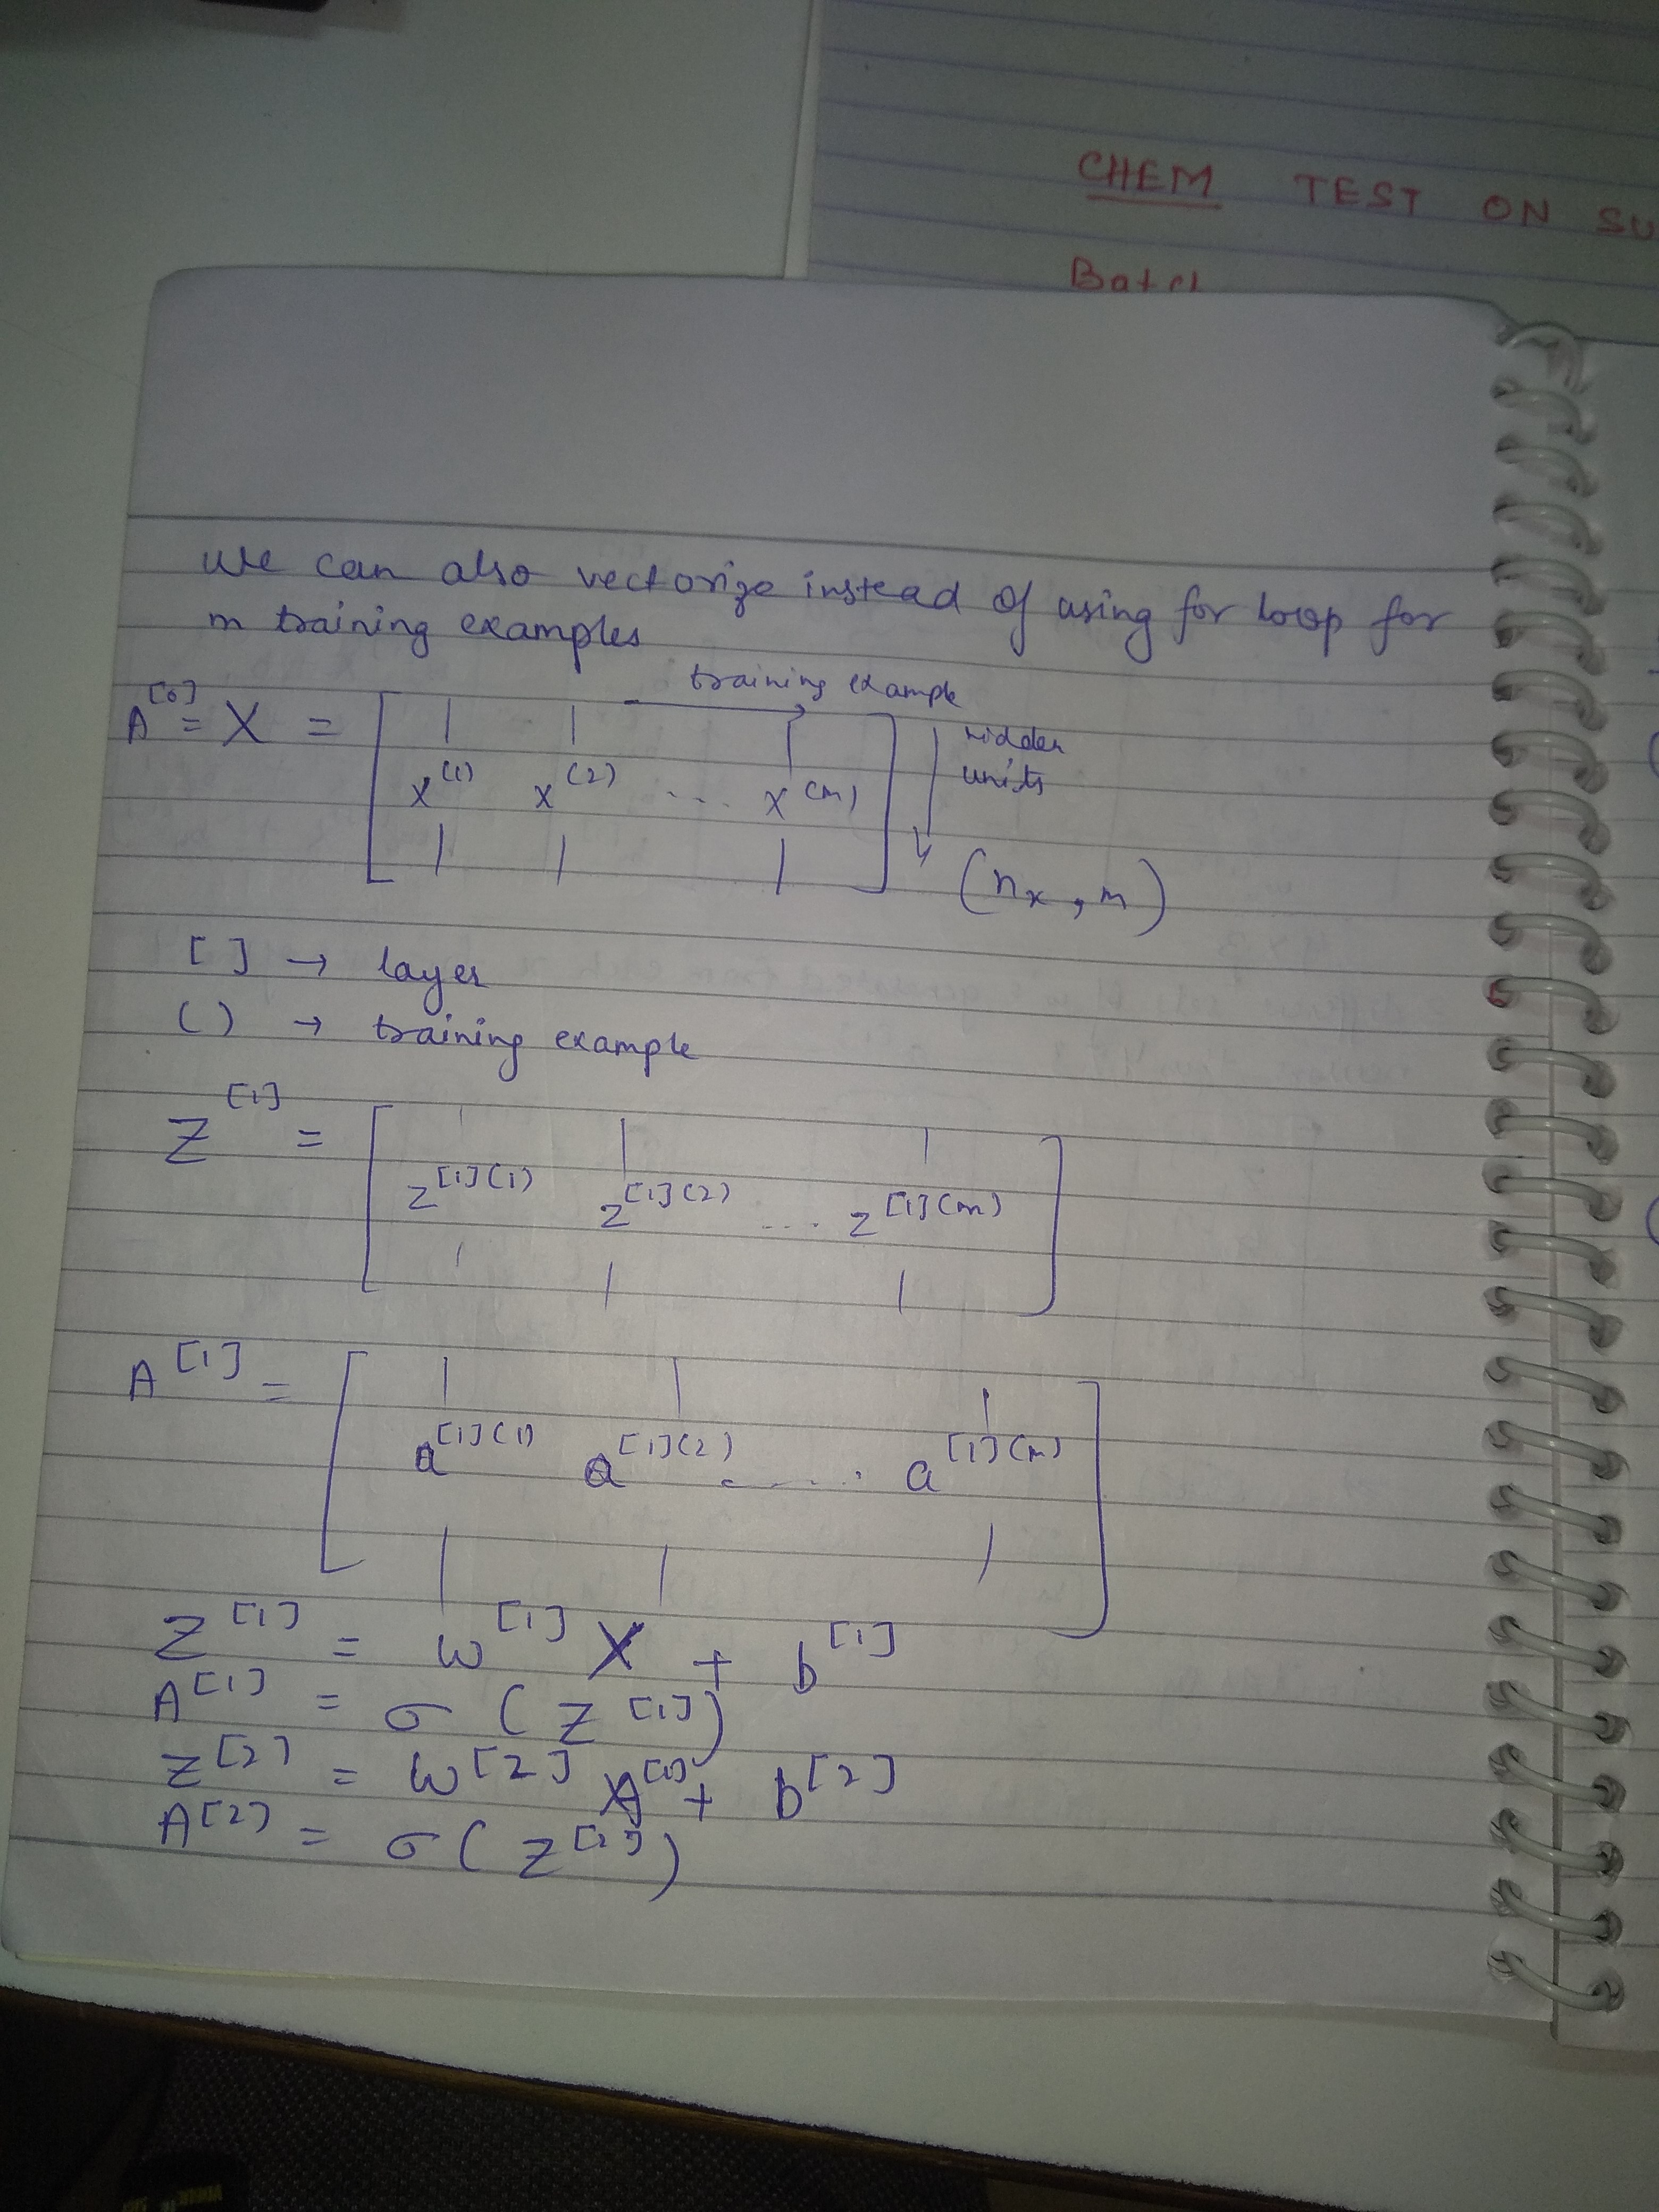 CHEM TEST ON SU
Batch
We can also vectorize instead of using for loop for
m training examples
training example
A^[0] = X = [ x^(1) x^(2) ... x^(m) ]
hidden
units
(n_x, m)
[ ] → layer
( ) → training example
Z^[1] = [ z^[1](1) z^[1](2) ... z^[1](m) ]
A^[1] = [ a^[1](1) a^[1](2) ..... a^[1](m) ]
Z^[1] = W^[1] X + b^[1]
A^[1] = σ(Z^[1])
Z^[2] = W^[2] A^[1] + b^[2]
A^[2] = σ(Z^[2])